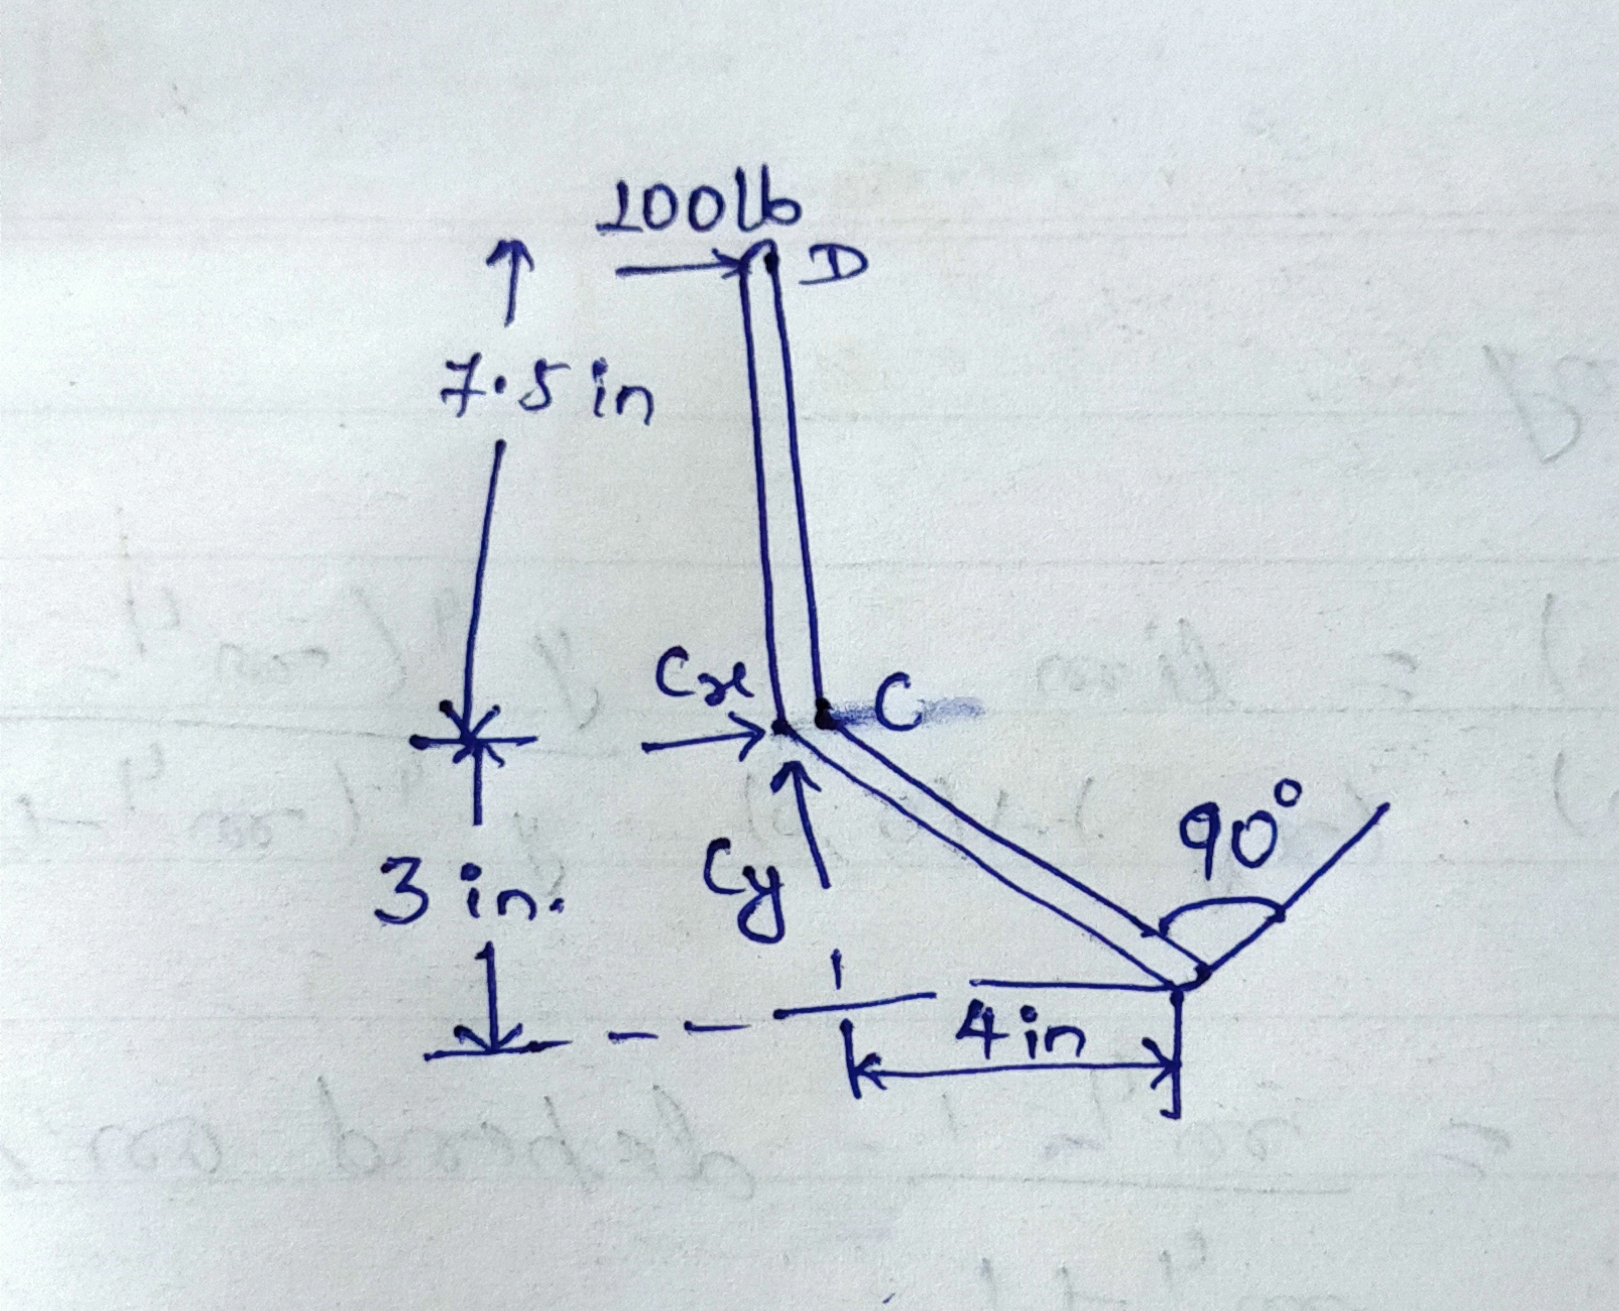 100lb
D
7.5 in
Cx
C
90°
3 in.
Cy
4 in